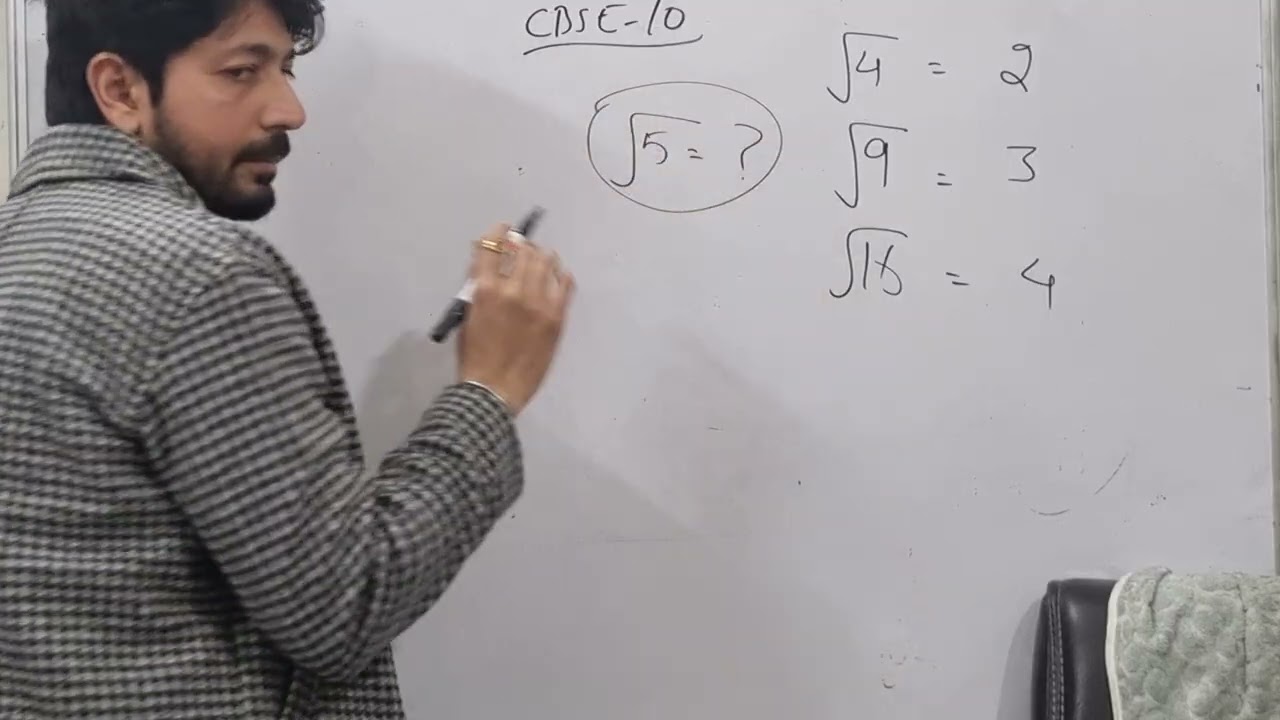 CBSE-10
√5 = ?
√4 = 2
√9 = 3
√16 = 4